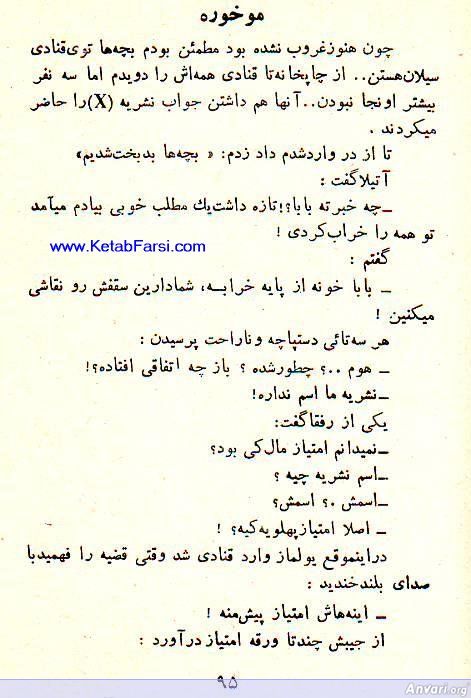 موخوره
چون هنوزغروب نشده بود مطمئن بودم بچه‌ها توی‌قنادی
سیلان‌هستن.. از چاپخانه‌تا قنادی همه‌اش را دویدم اما سه نفر
بیشتر اونجا نبودن..آنها هم داشتن جواب نشریه (X)را حاضر
میکردند .
تا از در واردشدم داد زدم: « بچه‌ها بدبخت‌شدیم»
آتیلاگفت :
ــچه خبرته بابا؟!تازه داشت‌یك مطلب خوبی بیادم میآمد
تو همه را خراب‌کردی !
www.KetabFarsi.com
گفتم :
ــ بابا خونه از پایه خرابـه، شمادارین سقفش رو نقاشی
میکنین !
هر سه‌تائی دستپاچه وناراحت پرسیدن :
ــ هوم ..؟ چطورشده ؟ باز چه اتفاقی افتاده؟!
ــنشریه ما اسم نداره!
یکی از رفقاگفت:
ــنمیدانم امتیاز مال‌کی بود؟
ــاسم نشریه چیه ؟
ــاسمش .؟ اسمش؟
ــ اصلا امتیازپهلویه‌کیه؟ !
دراینموقع یولماز وارد قنادی شد وقتی قضیه را فهمیدبا
صدای بلندخندید :
ــ اینه‌هاش امتیاز پیش‌منه !
از جیبش چندتا ورقه امتیاز درآورد :
۹۵
Anvari.org